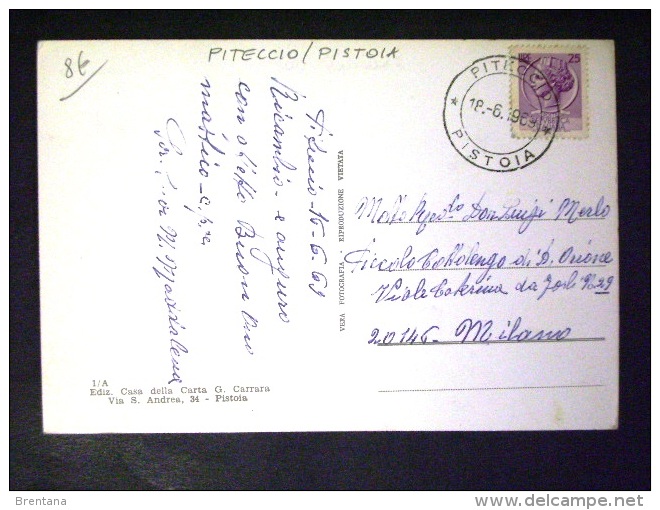 8€
PITECCIO / PISTOIA
25
PITECCIO
18.-6.1969
* PISTOIA *
Piteccio - 15-6-69
Ricambio e auguro
con affetto Buon Ono
mastico - e p. c.
M. Maddalena
VERA FOTOGRAFIA RIPRODUZIONE VIETATA
Molto Rev.do Don Luigi Merlo
Piccolo Cottolengo di D. Orione
Viale Caterina da Forlì N. 29
20146 - Milano
1/A
Ediz. Casa della Carta G. Carrara
Via S. Andrea, 34 - Pistoia
Brentana
delcampe.net